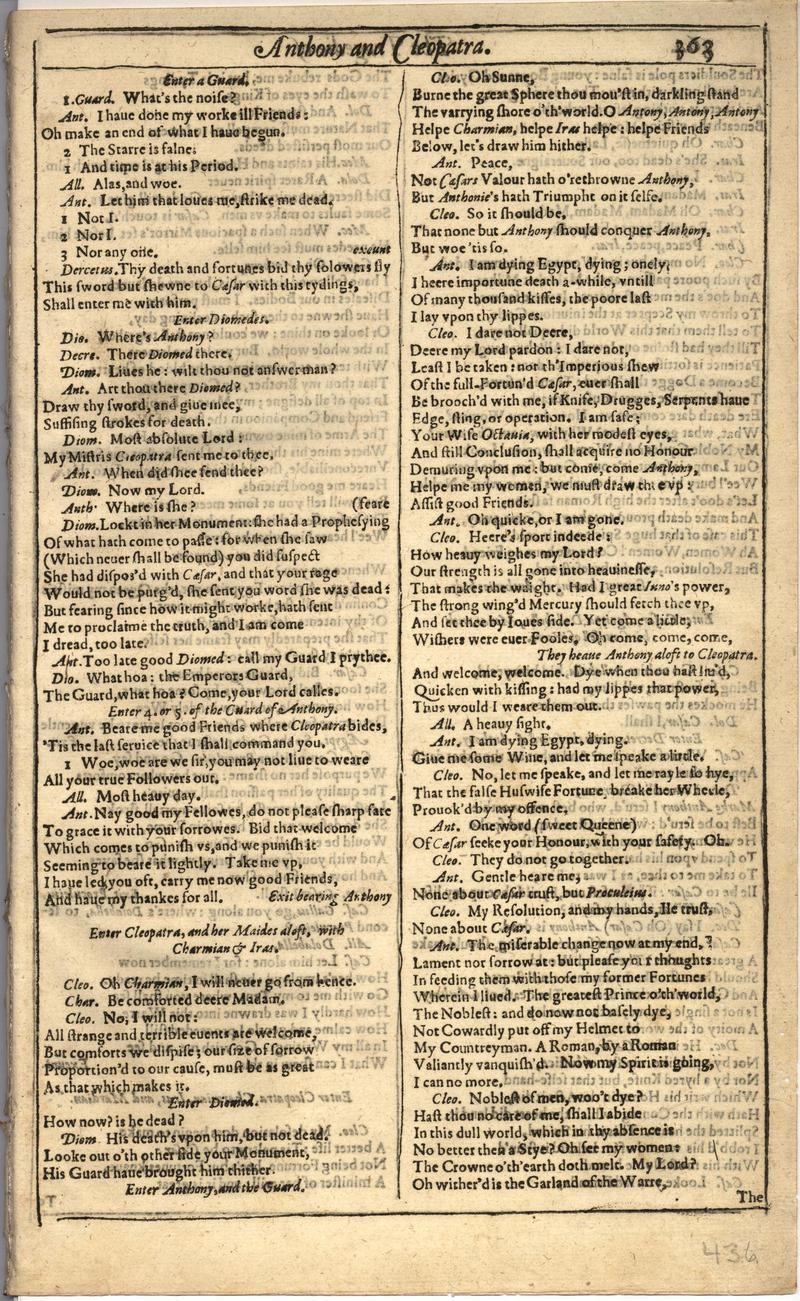 Anthony and Cleopatra. 363
Enter a Guard.
1.Guard. What's the noise?
Ant. I haue done my worke ill Friends:
Oh make an end of what I haue begun.
2 The Starre is falne.
1 And time is at his Period.
All. Alas, and woe.
Ant. Let him that loues me, strike me dead.
1 Not I.
2 Nor I.
3 Nor any one. exeunt
Dercetus. Thy death and fortunes bid thy folowers fly
This sword but shewne to Cæsar with this tydings,
Shall enter me with him.
Enter Diomedes.
Dio. Where's Anthony?
Decre. There Diomed there.
Diom. Liues he: wilt thou not answer man?
Ant. Art thou there Diomed?
Draw thy sword, and giue mee,
Suffising strokes for death.
Diom. Most absolute Lord:
My Mistris Cleopatra sent me to thee.
Ant. When did shee send thee?
Diom. Now my Lord.
Anth. Where is she? (feare
Diom. Lockt in her Monument: she had a Prophesying
Of what hath come to passe: for when she saw
(Which neuer shall be found) you did suspect
She had dispos'd with Cæsar, and that your rage
Would not be purg'd, she sent you word she was dead:
But fearing since how it might worke, hath sent
Me to proclaime the truth, and I am come
I dread, too late.
Ant. Too late good Diomed: call my Guard I prythee.
Dio. What hoa: the Emperors Guard,
The Guard, what hoa? Come, your Lord calles.
Enter 4. or 5. of the Guard of Anthony.
Ant. Beare me good Friends where Cleopatra bides,
'Tis the last seruice that I shall command you.
1 Woe, woe are we sir, you may not liue to weare
All your true Followers out.
All. Most heauy day.
Ant. Nay good my Fellowes, do not please sharp fate
To grace it with your sorrowes. Bid that welcome
Which comes to punish vs, and we punish it
Seeming to beare it lightly. Take me vp,
I haue led you oft, carry me now good Friends,
And haue my thankes for all. Exit bearing Anthony
Enter Cleopatra, and her Maides aloft, with
Charmian & Iras.
Cleo. Oh Charmian, I will neuer go from hence.
Char. Be comforted deere Madam.
Cleo. No, I will not:
All strange and terrible euents are welcome,
But comforts we dispise; our size of sorrow
Proportion'd to our cause, must be as great
As that which makes it.
Enter Diomed.
How now? is he dead?
Diom. His death's vpon him, but not dead.
Looke out o'th other side your Monument,
His Guard haue brought him thither.
Enter Anthony, and the Guard.
Cleo. Oh Sunne,
Burne the great Sphere thou mou'st in, darkling stand
The varrying shore o'th'world. O Antony, Antony, Antony
Helpe Charmian, helpe Iras helpe: helpe Friends
Below, let's draw him hither.
Ant. Peace,
Not Cæsars Valour hath o'rethrowne Anthony,
But Anthonie's hath Triumpht on it selfe.
Cleo. So it should be,
That none but Anthony should conquer Anthony,
But woe 'tis so.
Ant. I am dying Egypt, dying; onely
I heere importune death a-while, vntill
Of many thousand kisses, the poore last
I lay vpon thy lippes.
Cleo. I dare not Deere,
Deere my Lord pardon: I dare not,
Least I be taken: not th'Imperious shew
Of the full-Fortun'd Cæsar, euer shall
Be brooch'd with me, if Knife, Drugges, Serpents haue
Edge, sting, or operation. I am safe:
Your Wife Octauia, with her modest eyes,
And still Conclusion, shall acquire no Honour
Demuring vpon me: but come, come Anthony,
Helpe me my women, we must draw thee vp:
Assist good Friends.
Ant. Oh quicke, or I am gone.
Cleo. Heere's sport indeede:
How heauy weighes my Lord?
Our strength is all gone into heauinesse,
That makes the waight. Had I great Iuno's power,
The strong wing'd Mercury should fetch thee vp,
And set thee by Ioues side. Yet come a little,
Wishers were euer Fooles. Oh come, come, come,
They heaue Anthony aloft to Cleopatra.
And welcome, welcome. Dye when thou hast liu'd,
Quicken with kissing: had my lippes that power,
Thus would I weare them out.
All. A heauy sight.
Ant. I am dying Egypt, dying.
Giue me some Wine, and let me speake a little.
Cleo. No, let me speake, and let me rayle so hye,
That the false Huswife Fortune, breake her Wheele,
Prouok'd by my offence.
Ant. One word (sweet Queene)
Of Cæsar seeke your Honour, with your safety. Oh.
Cleo. They do not go together.
Ant. Gentle heare me,
None about Cæsar trust, but Proculeius.
Cleo. My Resolution, and my hands, Ile trust,
None about Cæsar.
Ant. The miserable change now at my end,
Lament nor sorrow at: but please your thoughts
In feeding them with those my former Fortunes
Wherein I liued. The greatest Prince o'th'world,
The Noblest: and do now not basely dye,
Not Cowardly put off my Helmet to
My Countreyman. A Roman, by a Roman
Valiantly vanquish'd. Now my Spirit is going,
I can no more.
Cleo. Noblest of men, woo't dye?
Hast thou no care of me, shall I abide
In this dull world, which in thy absence is
No better then a Stye? Oh see my women:
The Crowne o'th'earth doth melt. My Lord?
Oh wither'd is the Garland of the Warre,
The
436